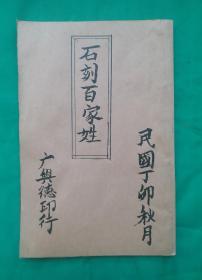 民國丁卯秋月
石刻百家姓
广興德印行